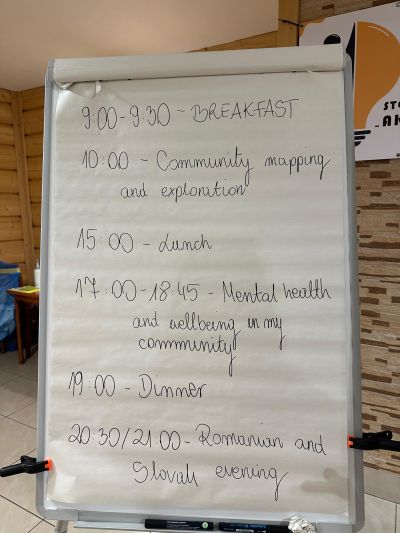 9:00-9:30 - BREAKFAST
10:00 - Community mapping
and exploration
15:00 - Lunch
17:00-18:45 - Mental health
and wellbeing in my
community
19:00 - Dinner
20:30/21:00 - Romanian and
Slovak evening
STO
-AK